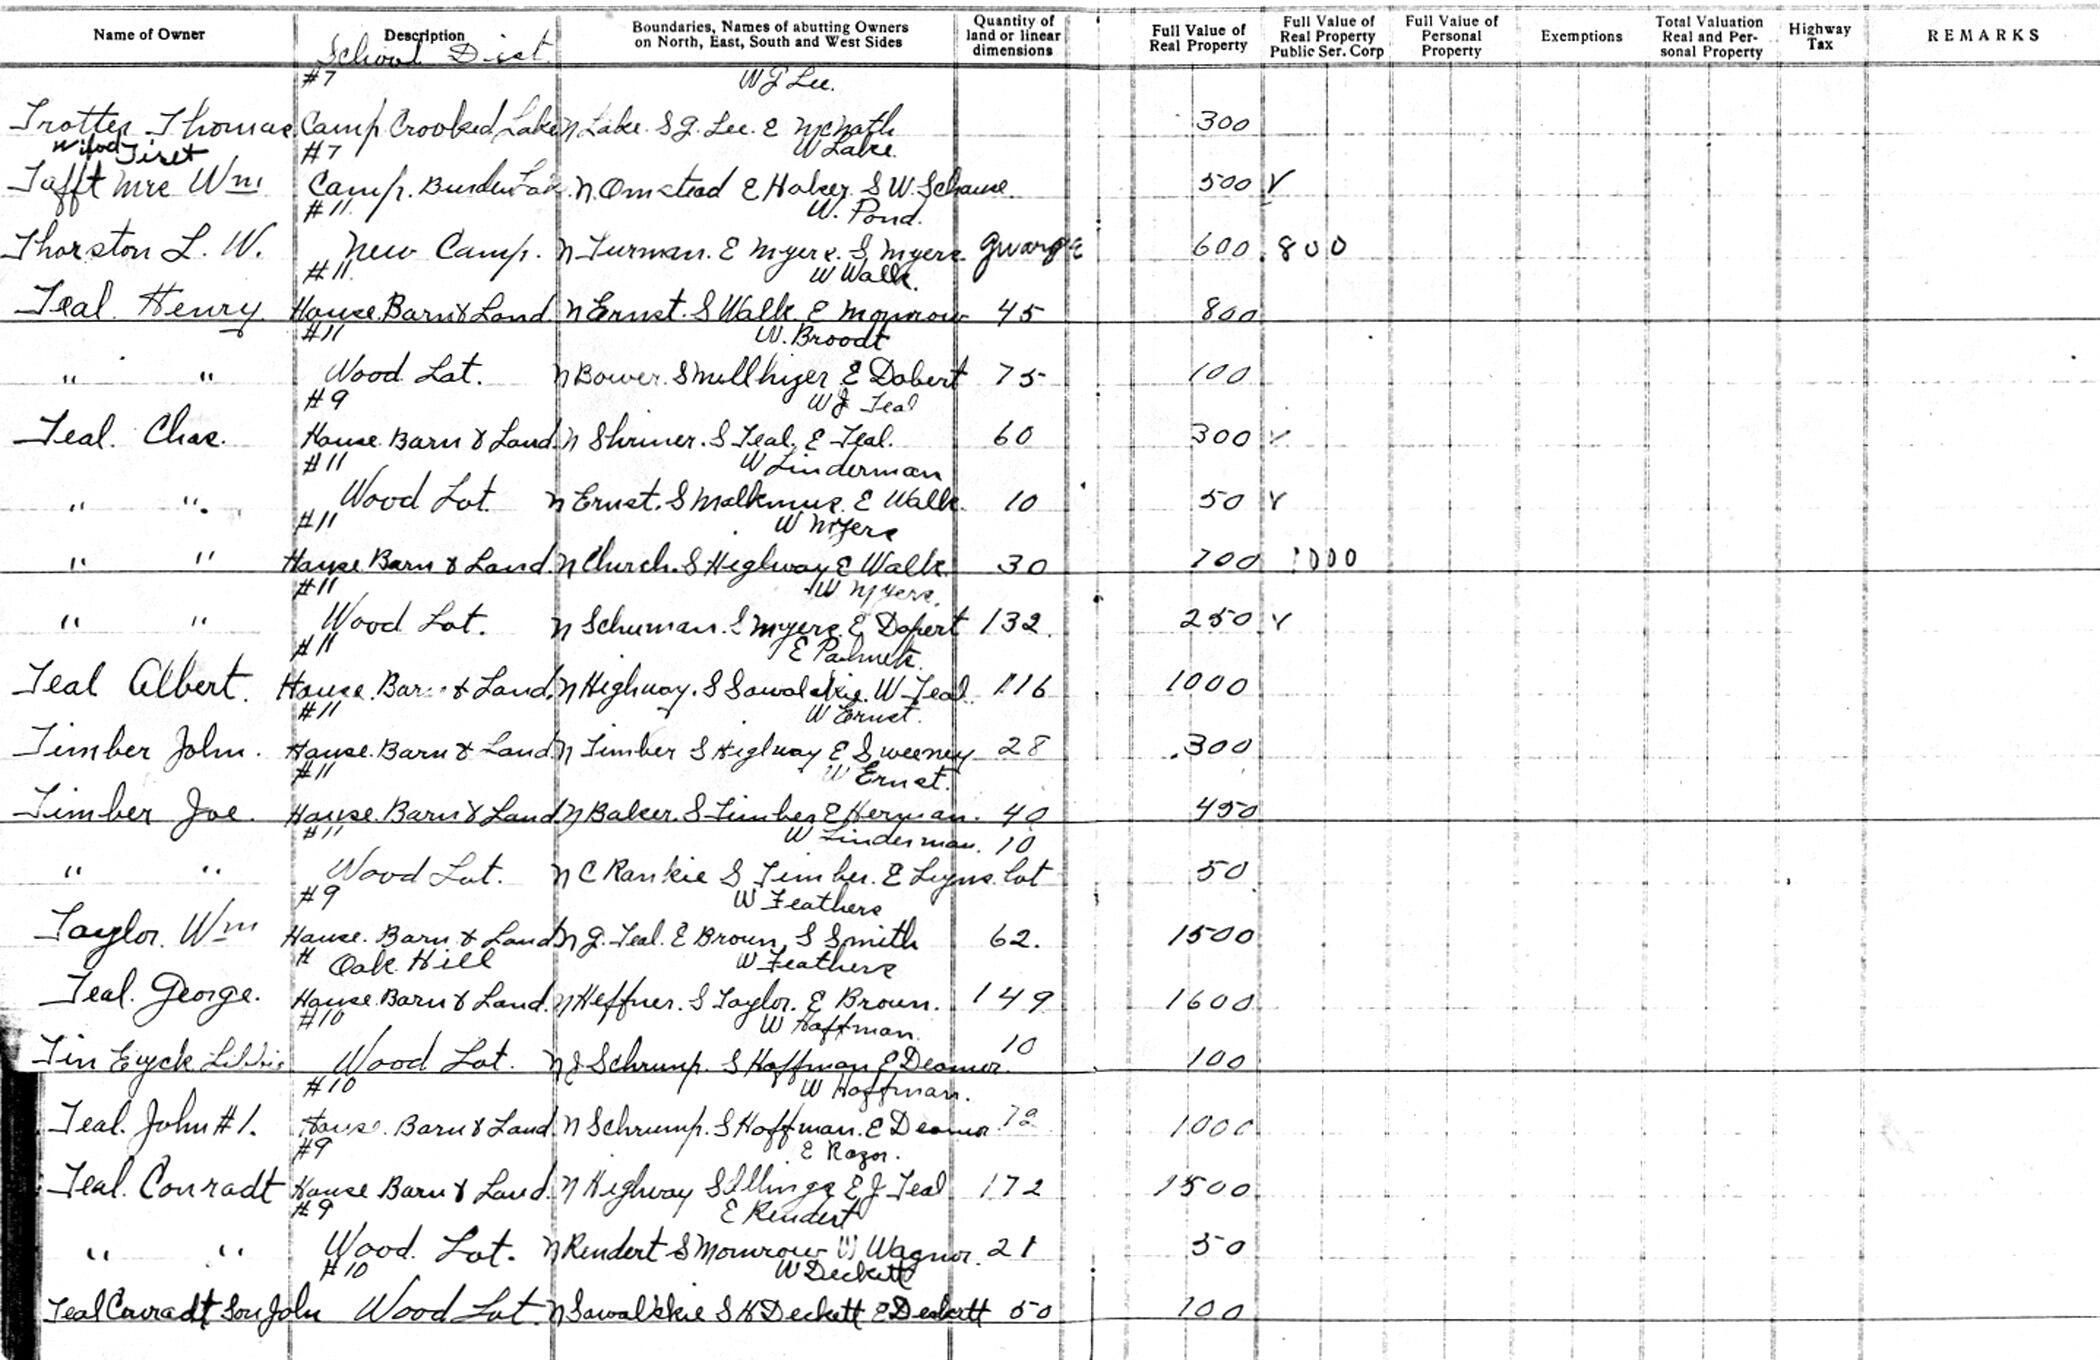 Name of Owner Description Boundaries, Names of abutting Owners on North, East, South and West Sides Quantity of land or linear dimensions Full Value of Real Property Full Value of Real Property Public Ser. Corp Full Value of Personal Property Exemptions Total Valuation Real and Personal Property Highway Tax REMARKS
School Dist.
#7 W J Lee.
Trotter Thomas Camp Crooked Lake N Lake. S J. Lee. E McNath 300
#7 W Lake.
Tafft Mrs Wm Camp. Burden Lak N. Omstead E Haker. S W. Schause. 500 V
#11. W. Pond.
Thorston L. W. New Camp. N Turman. E Myers. S Myers. 600 800
#11. W Walk.
Teal. Henry. House. Barn & Land. N Ernst. S Walk. E Monrow 45 800
#11 W. Broodt
" " Wood Lot. N Bower. S Millhizer E Dobert 75 100
#9 W J Teal
Teal. Chas. House. Barn & Land. N Shriner. S Teal. E Teal. 60 300 V
#11 W Linderman
" " Wood Lot. N Ernst. S Malkmus. E Walk. 10 50 V
#11 W Myers
" " House Barn & Land. N Church. S Highway E Walk. 30 700 1000
#11 W Myers.
" " Wood Lot. N Schuman. S Myers. E Dopert 132. 250 V
#11 E Palmets.
Teal Albert. House. Barn & Land. N Highway. S Sawalskie. W Teal. 116 1000
#11 W Ernst.
Timber John. House. Barn & Land. N Timber S Highway E Sweeney 28 300
#11 W Ernst.
Timber Joe. House. Barn & Land N Baker. S Timber E Herman. 40 450
#11 W Linderman. 10
" " Wood Lot. N C Rankie S Timber. E Lyns lot 50
#9 W Feathers
Taylor. Wm House. Barn & Land N J. Teal. E Brown. S Smith 62. 1500
# Oak Hill W Feathers
Teal. George. House. Barn & Land. N Heffner. S Taylor. E Brown. 149 1600
#10 W Hoffman. 10
Tin Eyck Libbie Wood Lot. N J Schrump. S Hoffman E Deamor. 100
#10 W Hoffman.
Teal. John #1. House. Barn & Land. N Schrump. S Hoffman. E Deamor 72 1000
#9 E Razor.
Teal. Conradt House Barn & Land. N Highway S Illings E J Teal 172 1500
#9 E Rendert
" " Wood. Lot. N Rendert S Monrow W Wagnor. 21 50
#10 W Deckett
Teal Conradt Son John Wood Lot. N Sawalskie S H Deckett E Deckett 50 100